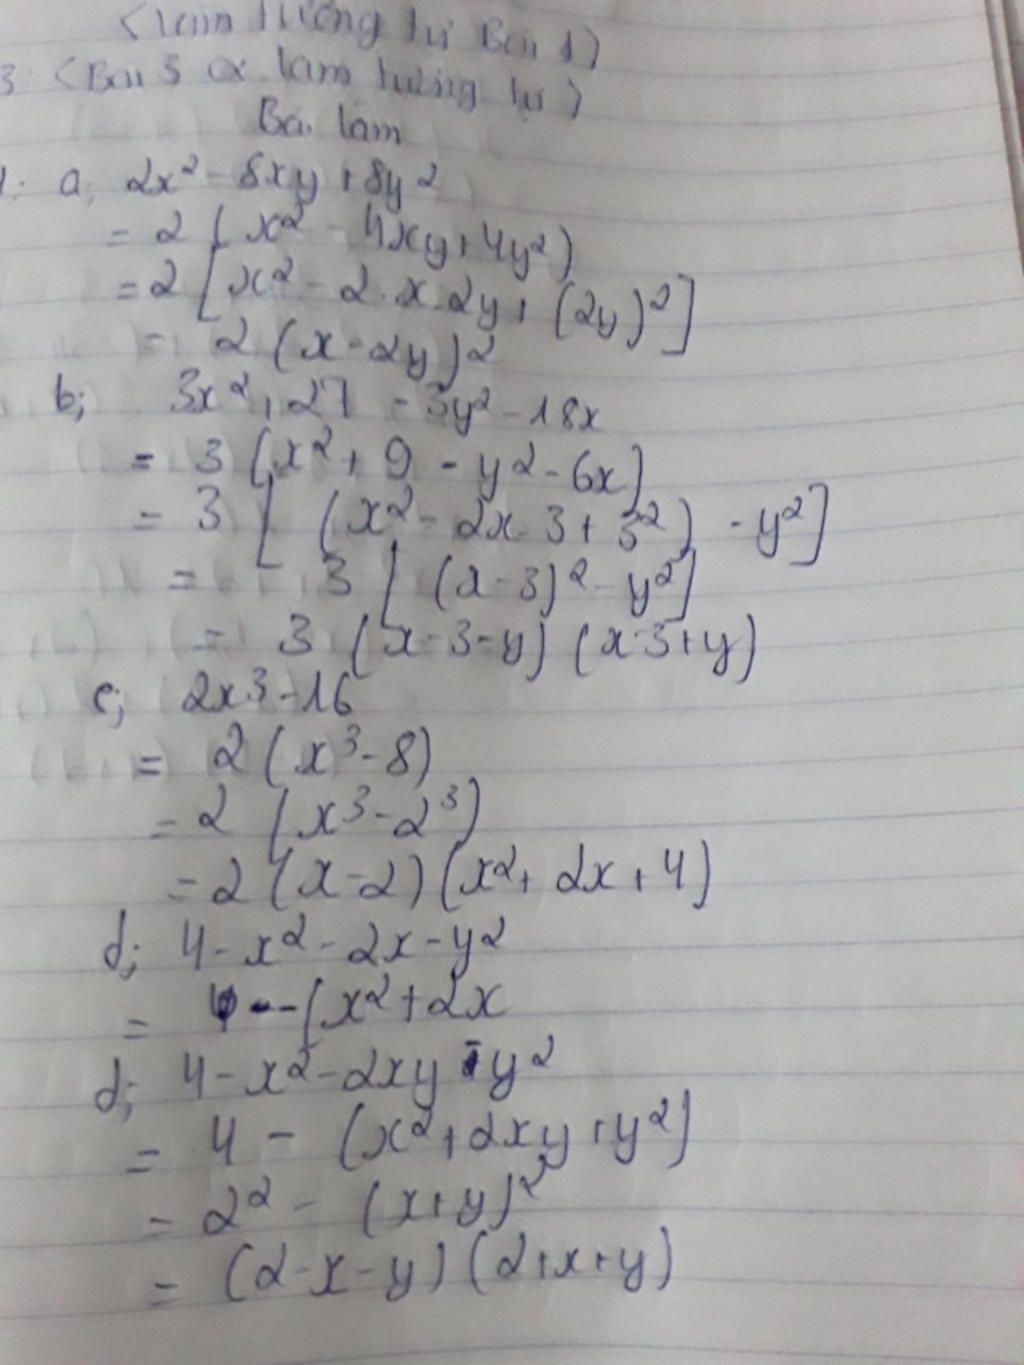 < Làm tương tự Bài 1 )
3: < Bài 3 a làm tương tự )
Bài làm
1: a; 2x² - 8xy + 8y²
= 2 ( x² - 4xy + 4y² )
= 2 [ x² - 2.x.2y + (2y)² ]
= 2 (x - 2y)²
b; 3x² + 27 - 3y² - 18x
= 3 (x² + 9 - y² - 6x)
= 3 [ (x² - 2x.3 + 3²) - y² ]
= 3 [ (x - 3)² - y² ]
= 3 (x - 3 - y) (x - 3 + y)
c; 2x³ - 16
= 2 (x³ - 8)
= 2 (x³ - 2³)
= 2 (x - 2) (x² + 2x + 4)
d; 4 - x² - 2x - y²
= 4 - (x² + 2x
d; 4 - x² - 2xy - y²
= 4 - (x² + 2xy + y²)
= 2² - (x + y)²
= (2 - x - y) (2 + x + y)